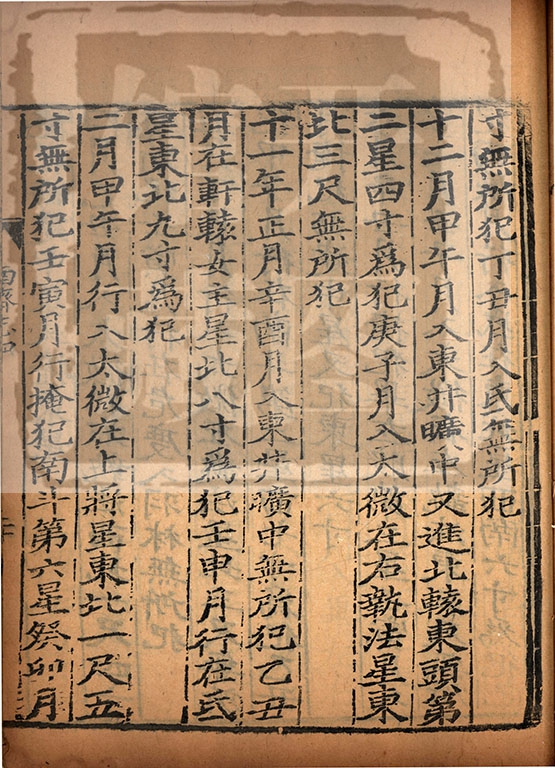 寸無所犯丁丑月入氐無所犯
十二月甲午月入東井曠中又進北轅東頭第
二星四寸爲犯庚子月入太微在右執法星東
北三尺無所犯
十一年正月辛酉月入東井曠中無所犯乙丑
月在軒轅女主星北八寸爲犯壬申月行在氐
星東北九寸爲犯
二月甲午月行入太微在上將星東北一尺五
寸無所犯壬寅月行掩犯南斗第六星癸卯月